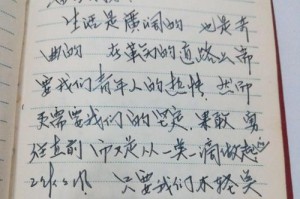 生活是广阔的 也是奔
的 在革命的道路上需
要我们青年人的热情 然而
更需要我们的坚定 果敢 勇
往直前 而又是从一点一滴做起
只要我们不轻